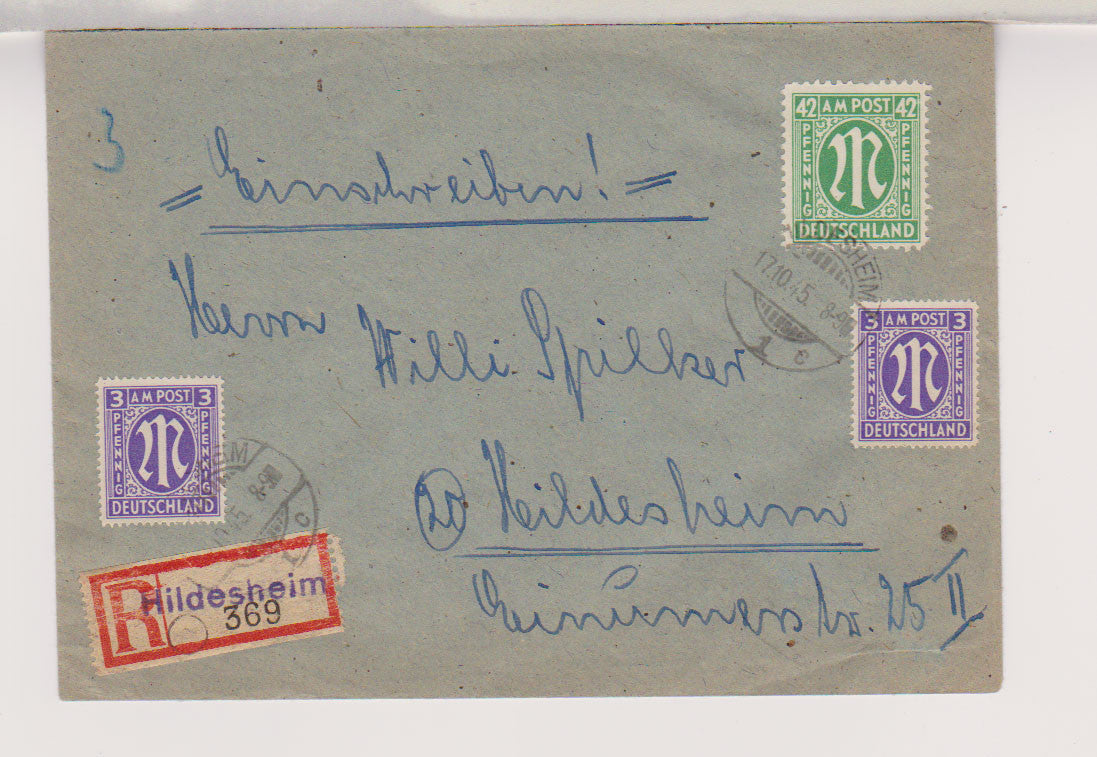 3
= Einschreiben! =
42 AM POST 42
PFENNIG PFENNIG
DEUTSCHLAND
HILDESHEIM
17.10.45. 8-9
1 c
3 AM POST 3
PFENNIG PFENNIG
DEUTSCHLAND
Herrn
Willi Spilker
3 AM POST 3
PFENNIG PFENNIG
DEUTSCHLAND
8-9
c
20 Hildesheim
Einumerstr. 25 II
R Hildesheim
369